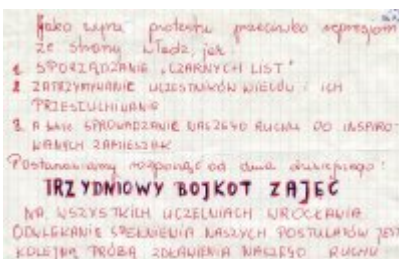 Jako wyraz protestu przeciwko represjom
ze strony władz, jak:
1. SPORZĄDZANIE „CZARNYCH LIST"
2. ZATRZYMYWANIE UCZESTNIKÓW WIECÓW I ICH
PRZESŁUCHIWANIE
3. A także SPROWADZANIE NASZEGO RUCHU DO INSPIRO-
WANYCH ZAMIESZEK
Postanawiamy rozpocząć od dnia dzisiejszego:
TRZYDNIOWY BOJKOT ZAJĘĆ
NA WSZYSTKICH UCZELNIACH WROCŁAWIA.
ODWLEKANIE SPEŁNIENIA NASZYCH POSTULATÓW JEST
KOLEJNĄ PRÓBĄ ZDŁAWIENIA NASZEGO RUCHU